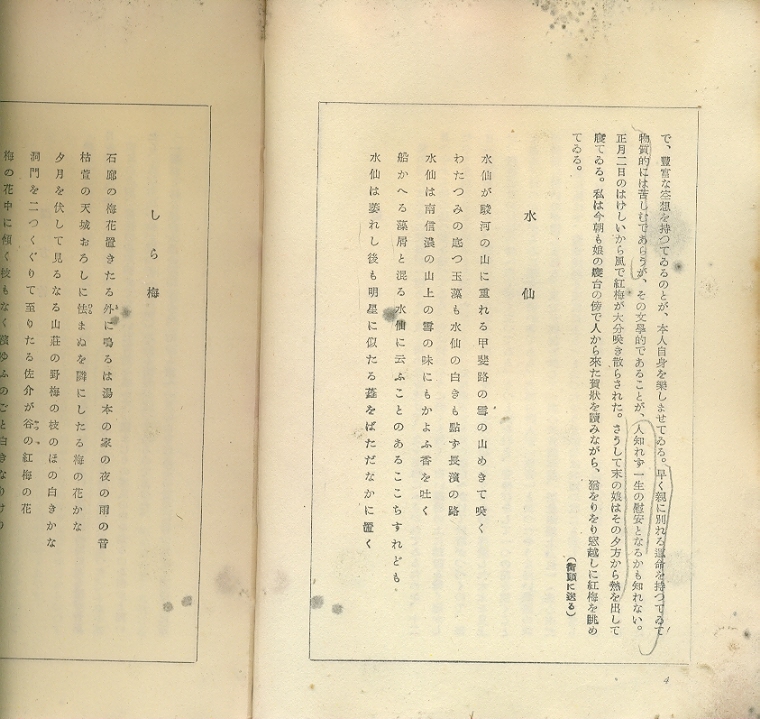 で、豐富な空想を持つてゐるのとが、本人自身を樂しませてゐる。早く親に別れる運命を持つてゐて
物質的には苦しむであらうが、その文學的であることが、人知れず一生の慰安となるかも知れない。
正月二日のはげしいから風で紅梅が大分吹き散らされた。さうして末の娘はその夕方から熱を出して
寢てゐる。私は今朝も娘の寢台の傍で人から來た賀狀を讀みながら、猶をりをり窓越しに紅梅を眺め
てゐる。
(街頭に送る)
水仙
水仙が駿河の山に重れる甲斐路の雪の山めきて咲く
わたつみの底つ玉藻も水仙の白きも點す長濱の路
水仙は南信濃の山上の雪の味にもかよふ香を吐く
船かへる藻屑と混る水仙に云ふことのあるここちすれども
水仙は萎れし後も明星に似たる蕊をばただなかに置く
4
しら梅
石廊の梅花置きたる外に鳴るは湯本の家の夜の雨の音
枯萱の天城おろしに怯まぬを隣にしたる梅の花かな
夕月を伏して見るなる山莊の野梅の枝のほの白きかな
洞門を二つくぐりて至りたる佐介が谷の紅梅の花
梅の花中に傾く枝もなく濱ゆふのごと白きなりけり